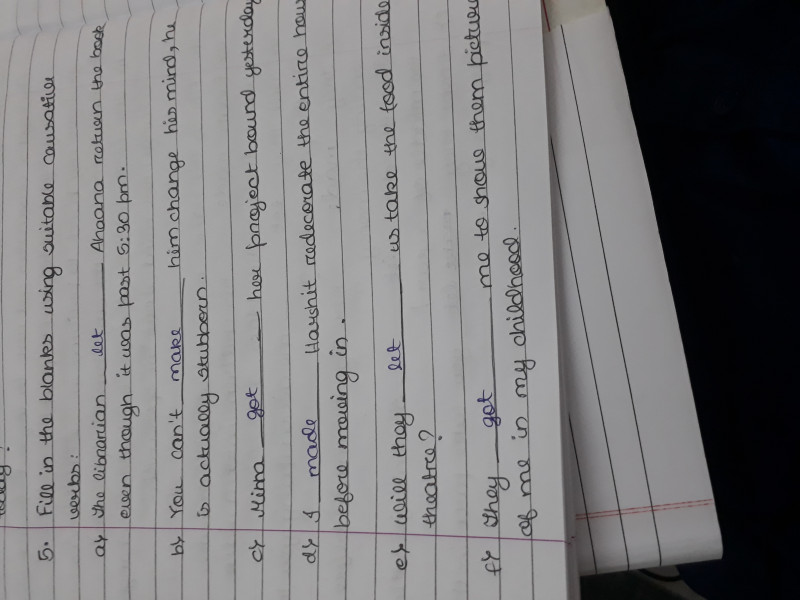 5. Fill in the blanks using suitable causative
verbs:
a) The librarian let Ahaana return the book
even though it was past 5:30 pm.
b) You can't make him change his mind, he
is actually stubborn.
c) Mira got her project bound yesterday
d) I made Harshit redecorate the entire hous
before moving in.
e) Will they let us take the food inside
theatre?
f) They got me to show them picture
of me in my childhood.